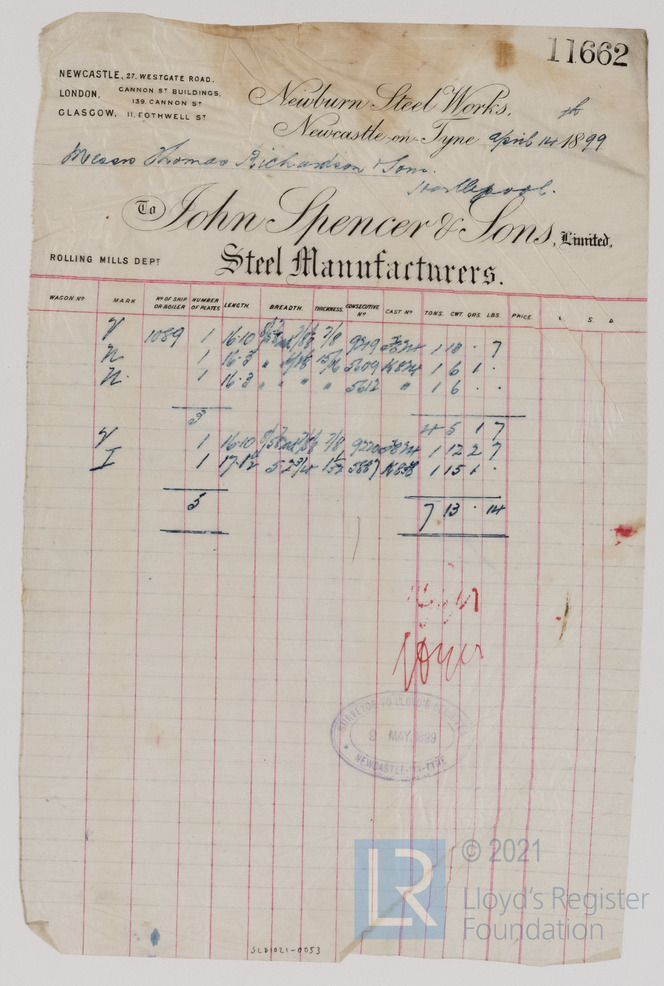 11662
NEWCASTLE, 27. WESTGATE ROAD.
LONDON, CANNON ST BUILDINGS,
139. CANNON ST
GLASGOW, 11. BOTHWELL ST
Newburn Steel Works,
Newcastle-on-Tyne April 14th 1899
Messrs Thomas Richardson & Sons.
Hartlepool.
To John Spencer & Sons, Limited,
ROLLING MILLS DEPT
Steel Manufacturers.
WAGON No MARK No OF SHIP OR BOILER NUMBER OF PLATES LENGTH. BREADTH. THICKNESS. CONSECUTIVE No CAST No TONS. CWT QRS LBS. PRICE £ S. D.
V 1089 1 16-10 7/8 9219 1 18 . 7
N 1 16-3 " 15/16 5609 1 6 1 .
N. 1 16-3 " " " 5612 " 1 6 . .
3 4 5 1 7
V 1 16-10 7/8 9220 1 12 2 7
I 1 5887 1 15 1 .
5 7 13 . 14
SURVEYOR TO LLOYD'S REGISTER
9 MAY 1899
NEWCASTLE-ON-TYNE
LR
© 2021
Lloyd's Register
Foundation
SLD1021-0053